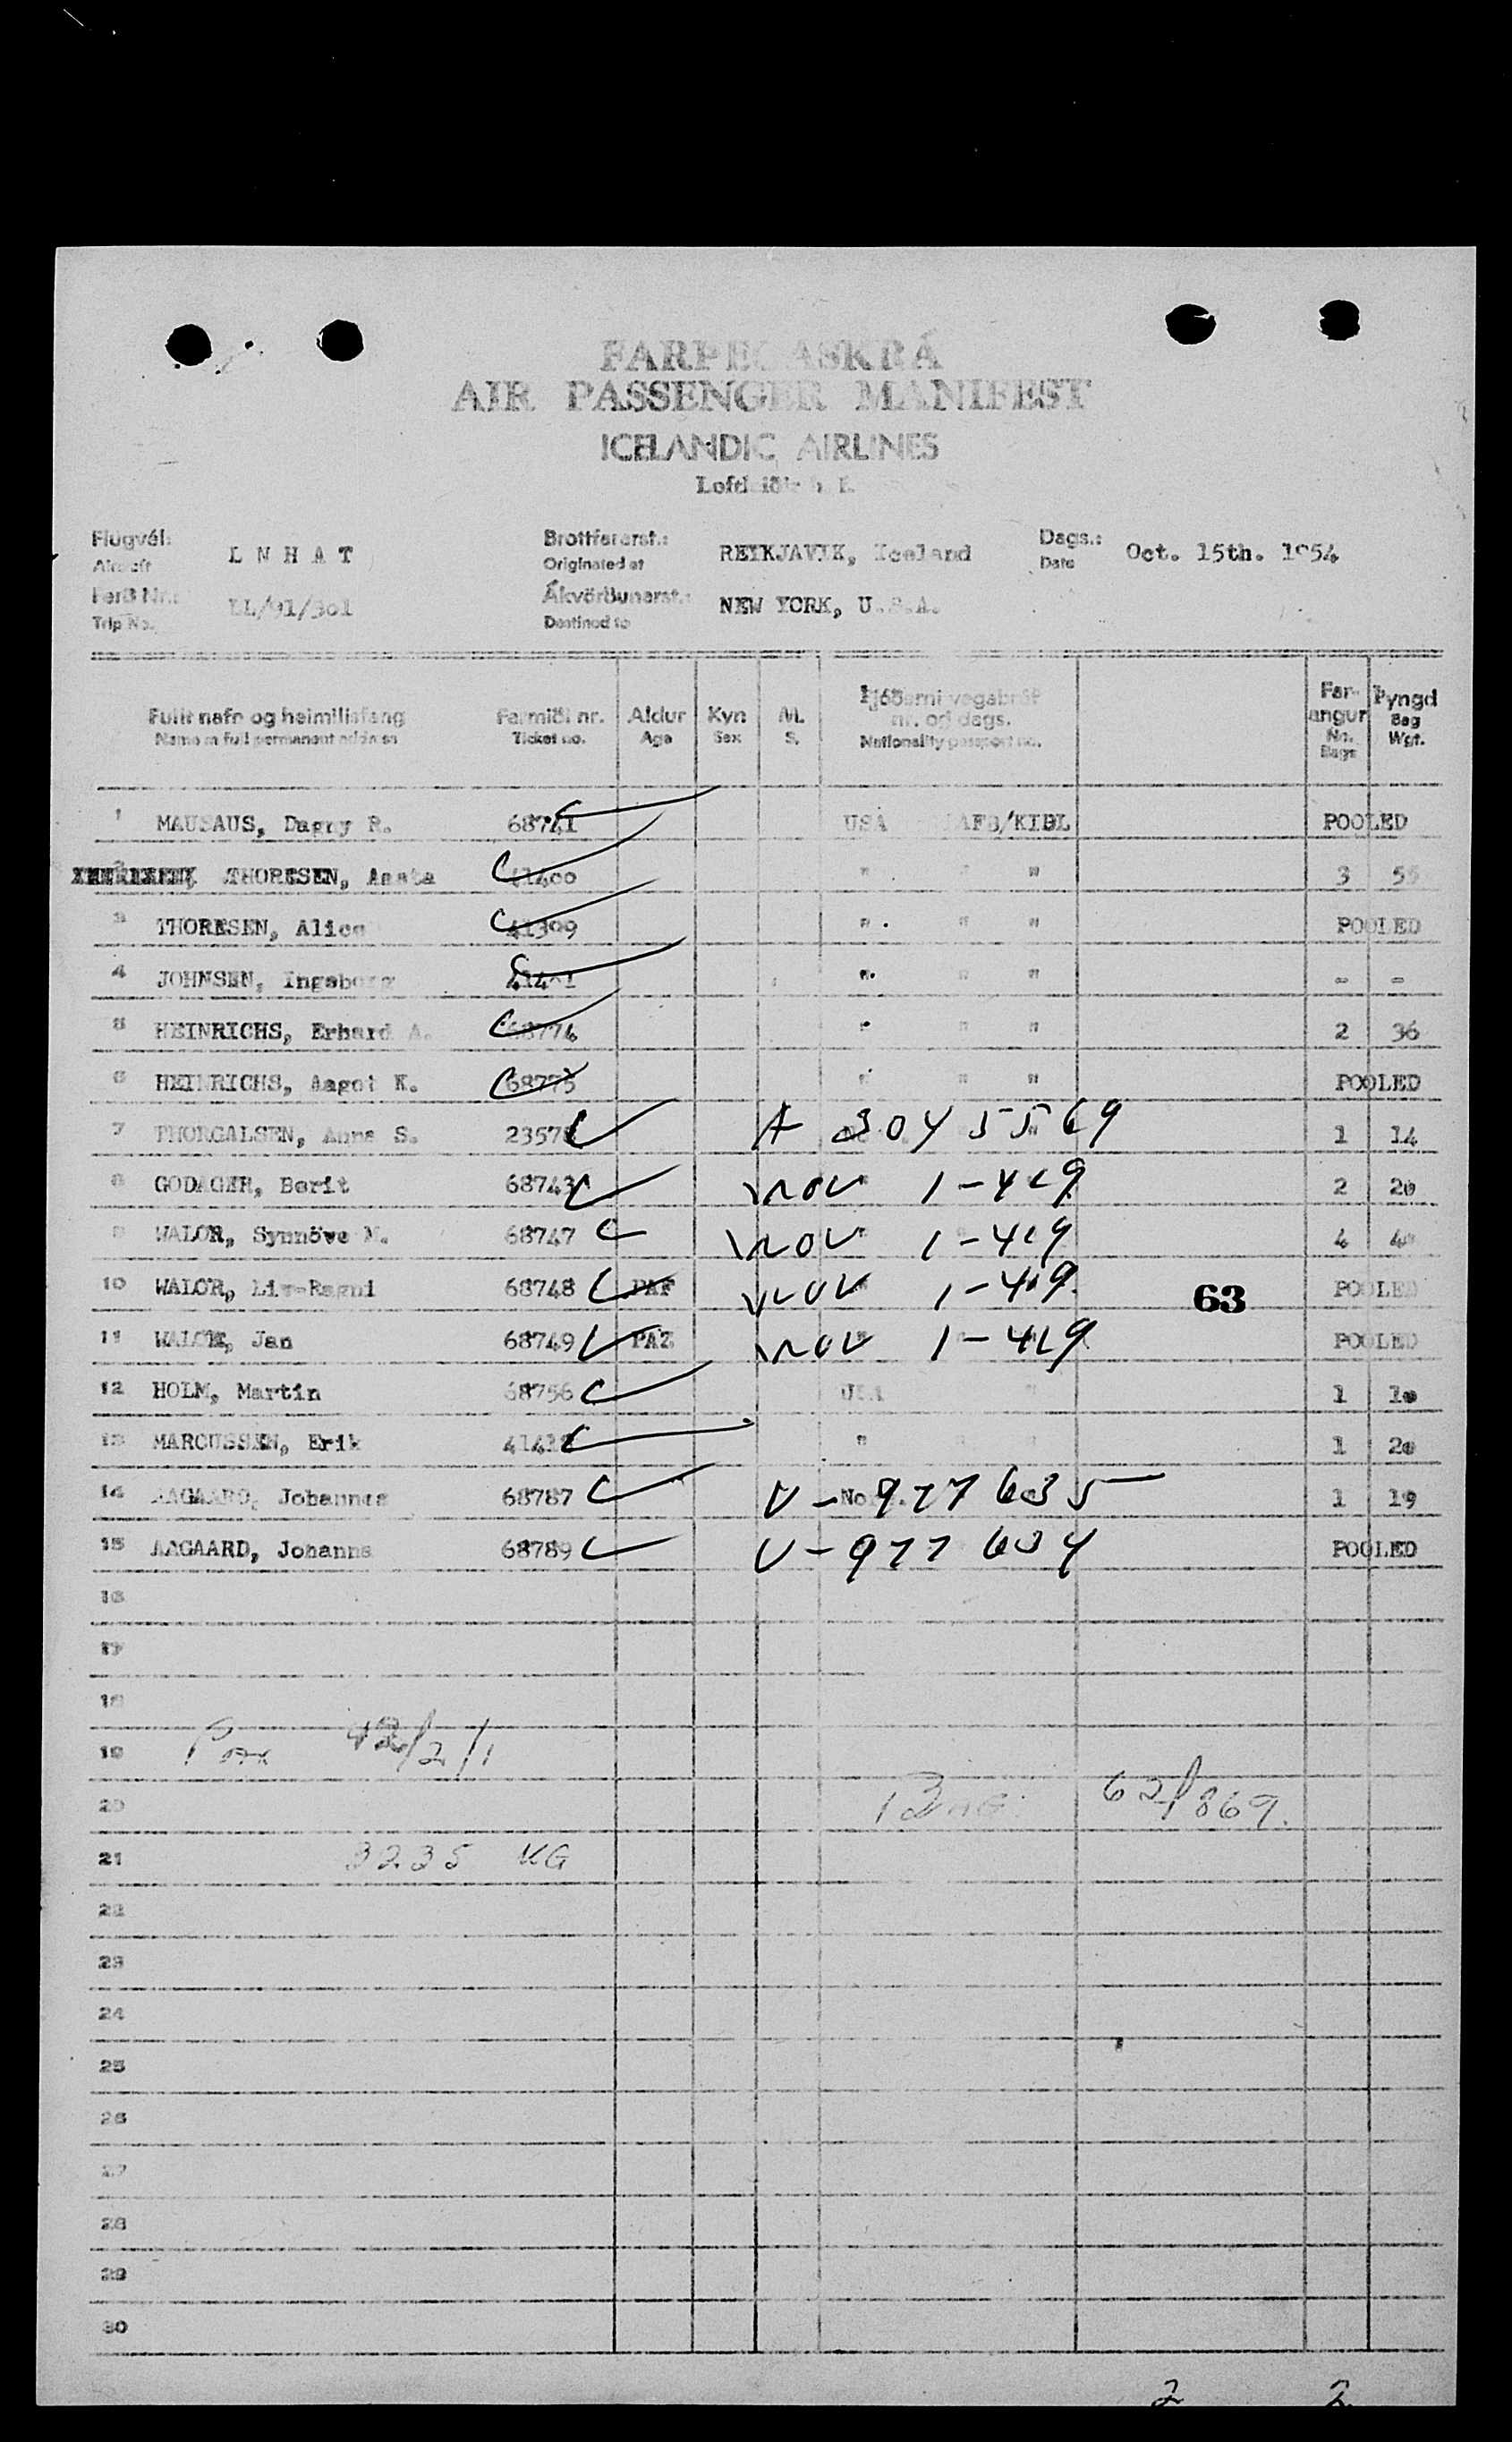 FARÞEGASKRÁ
AIR PASSENGER MANIFEST
ICELANDIC AIRLINES
Loftleiðir h. f.
Flugvél: L N H A T Brottfararst.: REYKJAVIK, Iceland Dags.: Oct. 15th. 1954
Aircraft Originated at Date
Ferð Nr.: LL/91/301 Ákvörðunarst.: NEW YORK, U.S.A.
Trip No. Destined to
Fullt nafn og heimilisfang Farmiði nr. Aldur Kyn M. Þjóðerni vegabréf nr. og dags. Far-angur Þyngd
Name in full permanent address Ticket no. Age Sex S. Nationality passport no. No. Bags Bag Wgt.
1 MAUSAUS, Dagny R. 68741 USA POOLED
THORESEN, Agata 41400 " " 3 55
3 THORESEN, Alice 41399 " " " POOLED
4 JOHNSEN, Ingeborg 41401 " " " - -
5 HEINRICHS, Erhard A. 68774 " " " 2 36
6 HEINRICHS, Aagot K. 68775 " " " POOLED
7 THORGALSEN, Anna S. A 3045569 1 14
8 GODAGER, Berit 68743 2 20
9 WALOR, Synnöve 68747 4
10 WALOR, Liv-Ragni 68748 63 POOLED
11 Jan 68749 POOLED
12 HOLM, Martin 68756 USA " 1 10
13 MARCUSSEN, Erik " " " 1 20
14 AAGAARD, Johannes 68787 V-977635 1 19
15 AAGAARD, Johanna 68789 V-977634 POOLED
16
17
18
19 Pax 42/2/1
20 BAG: 62/869.
21 3235 KG
22
23
24
25
26
27
28
29
30
2 2